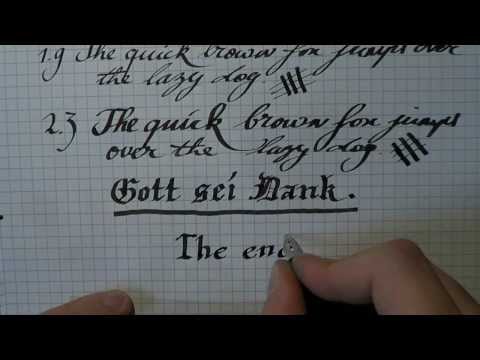 1.9 The quick brown fox jumps over
the lazy dog
2.3 The quick brown fox jumps
over the lazy dog.
Gott sei Dank.
The end